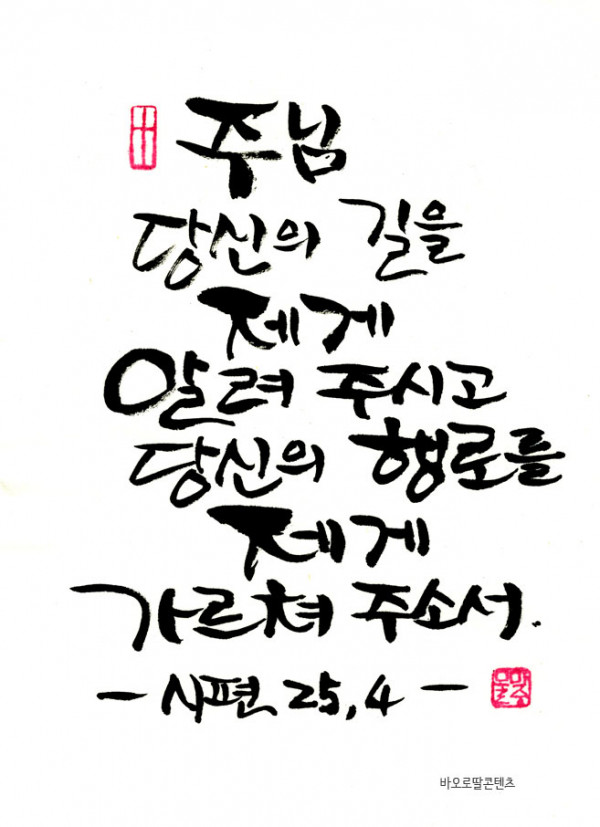 주님
당신의 길을
제게
알려 주시고
당신의 행로를
제게
가르쳐 주소서.
- 시편 25,4 -
바오로딸콘텐츠